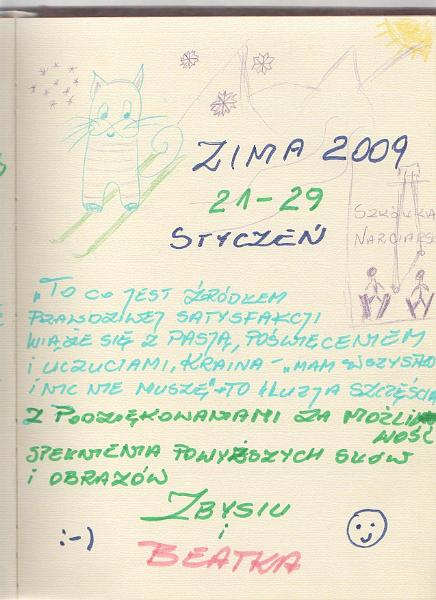 ZIMA 2009
21-29
STYCZEŃ
SZKÓŁKA
NARCIARSK
„TO CO JEST ŹRÓDŁEM
PRAWDZIWEJ SATYSFAKCJI
WIĄŻE SIĘ Z PASJĄ, POŚWIĘCENIEM
I UCZUCIAMI, KRAINA - „MAM WSZYSTKO
I NIC NIE MUSZĘ" - TO ILUZJA SZCZĘŚCIA
Z PODZIĘKOWANIAMI ZA MOŻLI
WOŚĆ
SPEŁNIENIA POWYŻSZYCH SŁÓW
I OBRAZÓW
ZBYSIU
i
:-) BEATKA